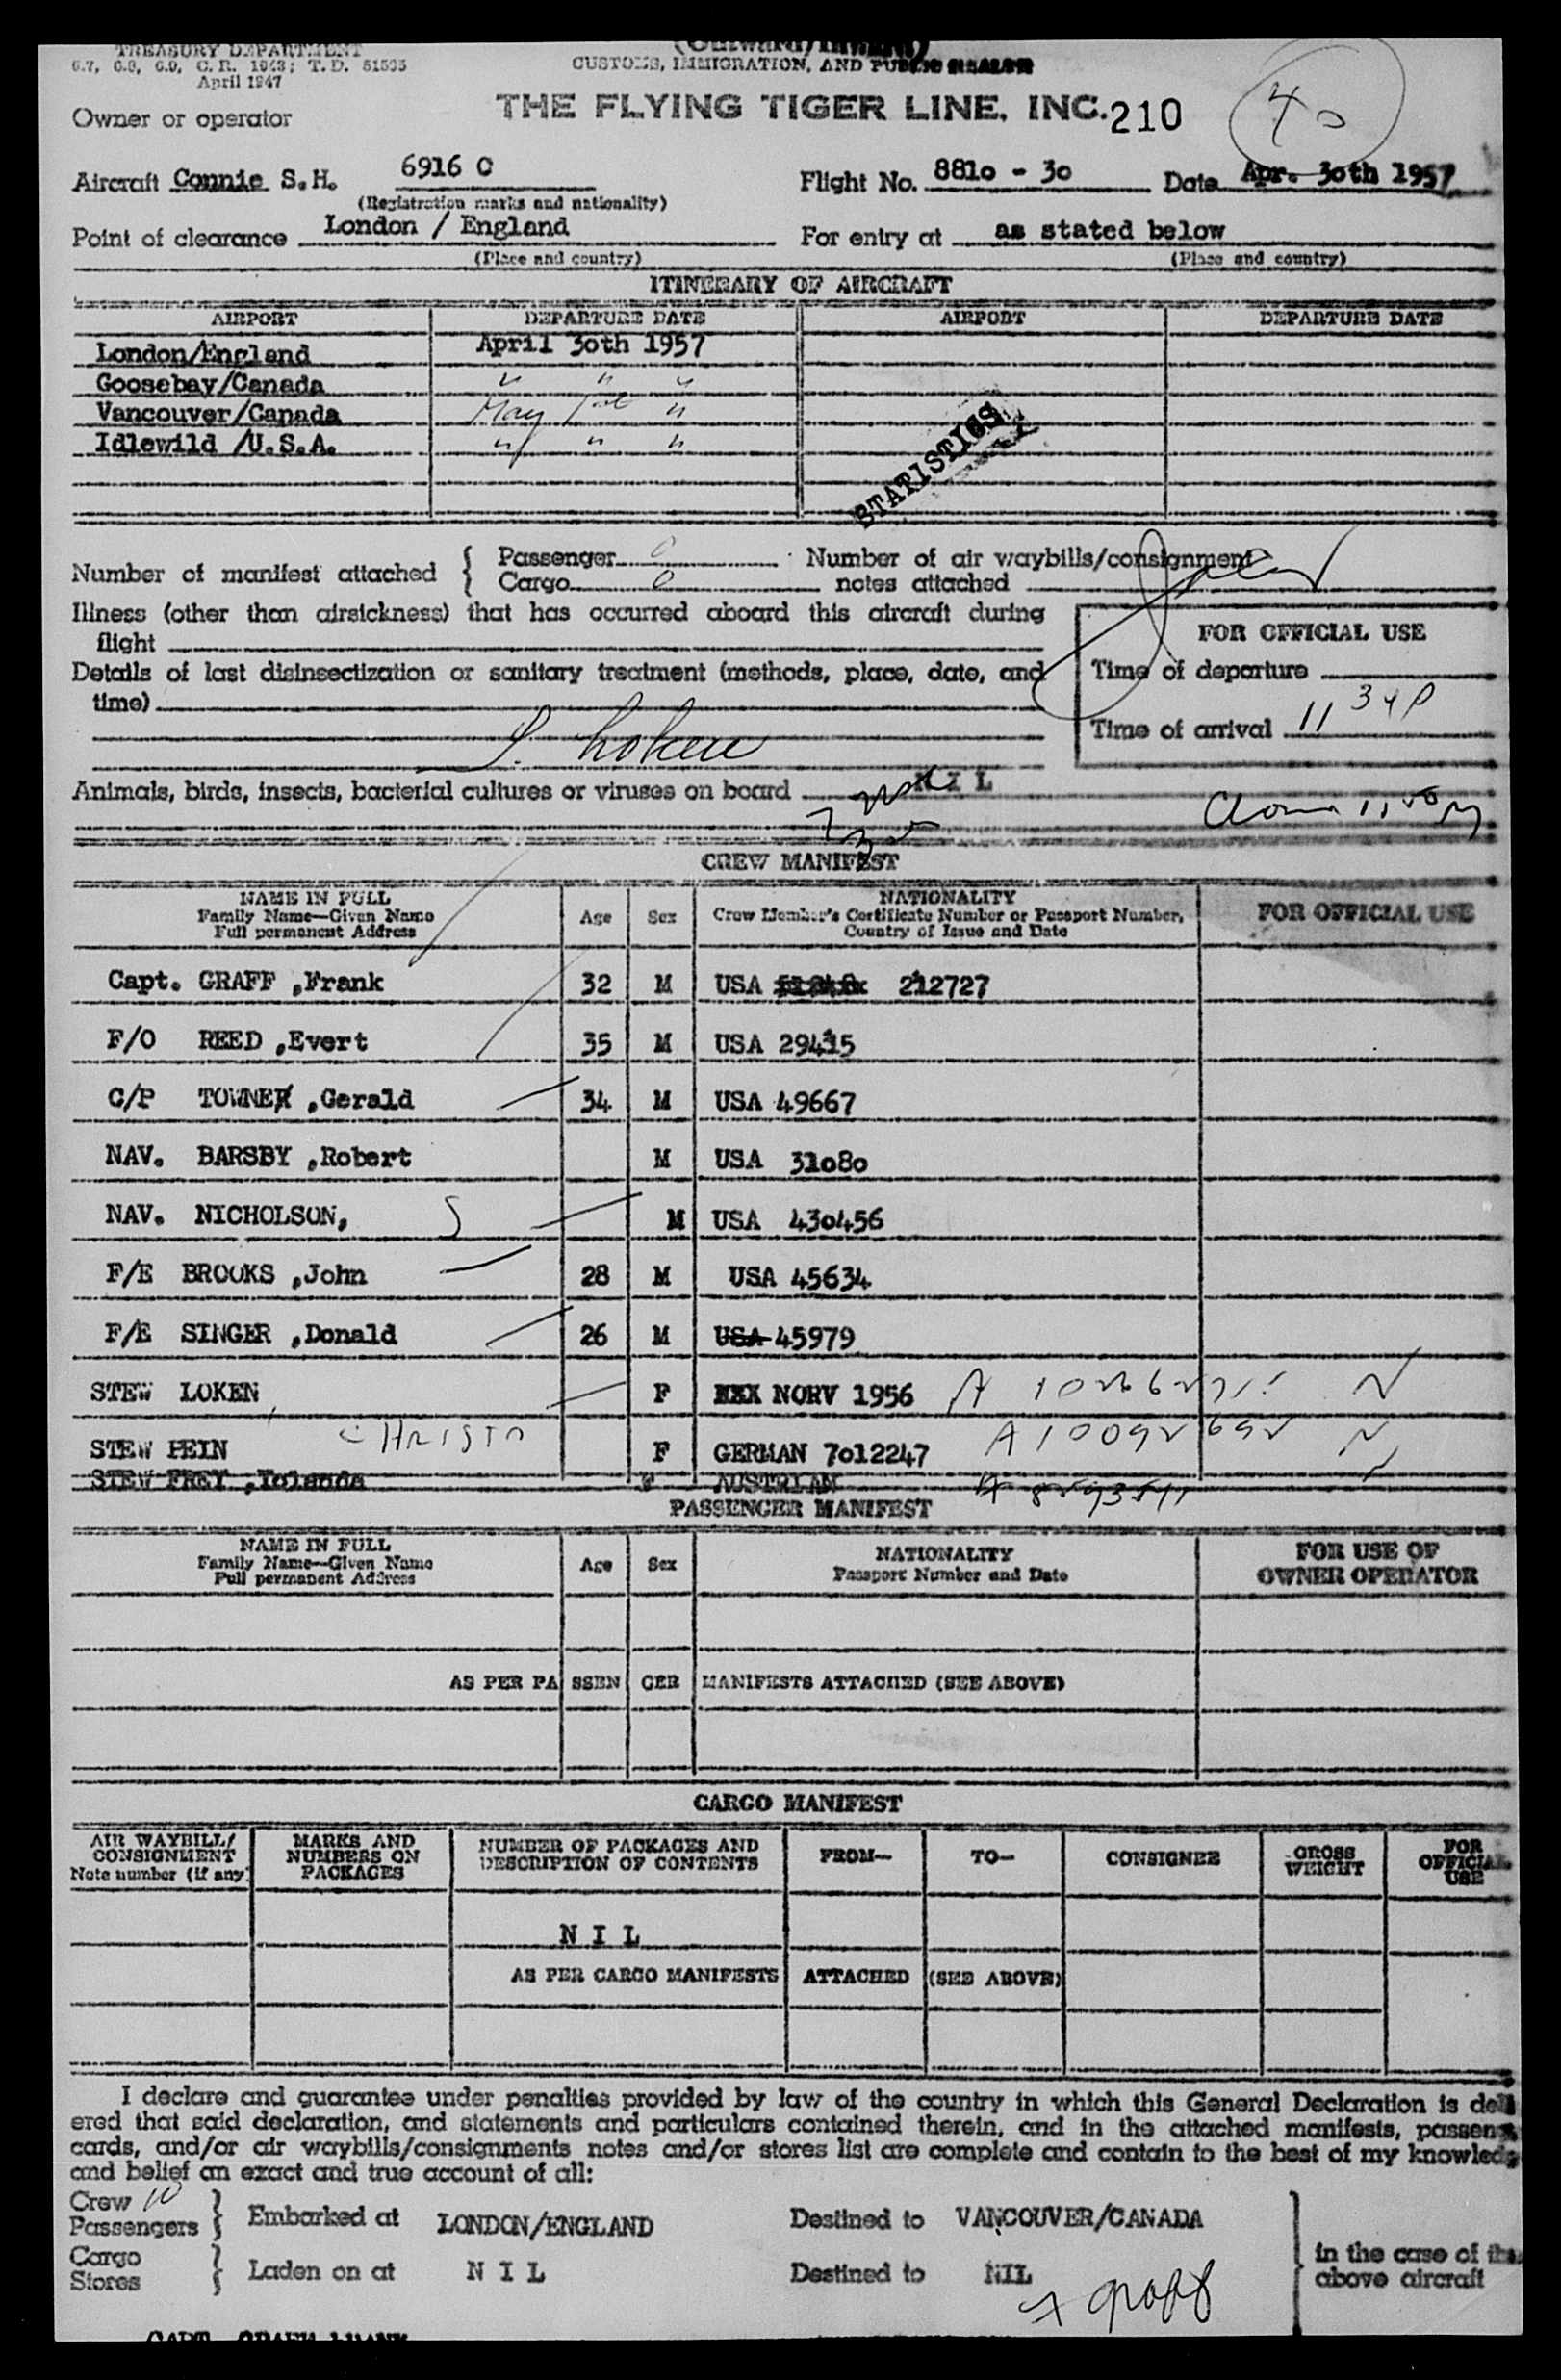 TREASURY DEPARTMENT
6.7, 6.8, 6.9, C. R. 1943; T. D. 51595
April 1947
(Outward/Inward)
CUSTOMS, IMMIGRATION, AND PUBLIC HEALTH
THE FLYING TIGER LINE, INC. 210
Owner or operator
Aircraft Connie S.H. 6916 C Flight No. 8810 - 30 Date Apr. 30th 1957
(Registration marks and nationality)
Point of clearance London / England For entry at as stated below
(Place and country) (Place and country)
ITINERARY OF AIRCRAFT
AIRPORT DEPARTURE DATE AIRPORT DEPARTURE DATE
London/England April 30th 1957
Goosebay/Canada " " "
Vancouver/Canada May 1st "
Idlewild /U.S.A. " " "
STATISTICS
Number of manifest attached { Passenger 0 Number of air waybills/consignment
Cargo 0 notes attached
Illness (other than airsickness) that has occurred aboard this aircraft during
flight
FOR OFFICIAL USE
Details of last disinsectization or sanitary treatment (methods, place, date, and
time)
Time of departure
Time of arrival 11 34 P
S. Loken
Animals, birds, insects, bacterial cultures or viruses on board N I L
CREW MANIFEST
NAME IN FULL
Family Name—Given Name
Full permanent Address
Age Sex
NATIONALITY
Crew Member's Certificate Number or Passport Number,
Country of Issue and Date
FOR OFFICIAL USE
Capt. GRAFF ,Frank 32 M USA 212727
F/O REED ,Evert 35 M USA 29415
C/P TOWNER ,Gerald 34 M USA 49667
NAV. BARSBY ,Robert M USA 31080
NAV. NICHOLSON, S M USA 430456
F/E BROOKS ,John 28 M USA 45634
F/E SINGER ,Donald 26 M USA 45979
STEW LOKEN F NORV 1956
STEW HEIN F GERMAN 7012247
STEW FREY ,Yolanda F AUSTRIAN
PASSENGER MANIFEST
NAME IN FULL
Family Name—Given Name
Full permanent Address
Age Sex
NATIONALITY
Passport Number and Date
FOR USE OF
OWNER OPERATOR
AS PER PASSENGER MANIFESTS ATTACHED (SEE ABOVE)
CARGO MANIFEST
AIR WAYBILL/
CONSIGNMENT
Note number (if any)
MARKS AND
NUMBERS ON
PACKAGES
NUMBER OF PACKAGES AND
DESCRIPTION OF CONTENTS
FROM— TO— CONSIGNEE
GROSS
WEIGHT
FOR
OFFICIAL
USE
N I L
AS PER CARGO MANIFESTS ATTACHED (SEE ABOVE)
I declare and guarantee under penalties provided by law of the country in which this General Declaration is deli
ered that said declaration, and statements and particulars contained therein, and in the attached manifests, passeng
cards, and/or air waybills/consignments notes and/or stores list are complete and contain to the best of my knowledg
and belief an exact and true account of all:
Crew 10
Passengers } Embarked at LONDON/ENGLAND Destined to VANCOUVER/CANADA
Cargo
Stores } Laden on at N I L Destined to NIL
in the case of the
above aircraft
x Graff